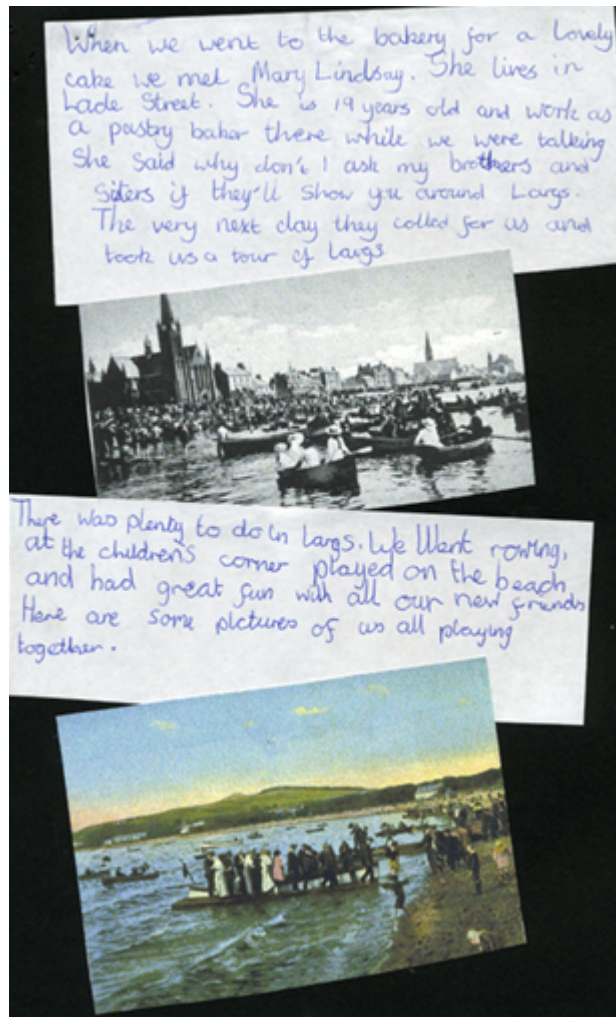 When we went to the bakery for a lovely
cake we met Mary Lindsay. She lives in
Lade Street. She is 19 years old and work as
a pastry baker there while we were talking
She said why don't I ask my brothers and
Sisters if they'll show you around Largs.
The very next day they called for us and
took us a tour of Largs
There was plenty to do in Largs. We Went rowing,
at the children's corner played on the beach
and had great fun with all our new friends
Here are some pictures of us all playing
together.